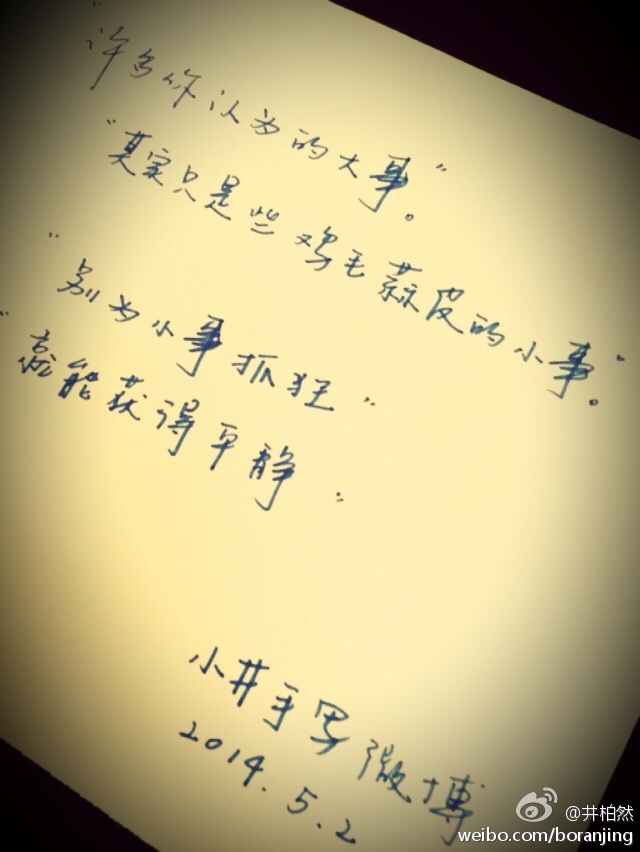 "许多你认为的大事"。
"其实只是些鸡毛蒜皮的小事"。
"别为小事抓狂"
"就能获得平静"
小井手写微博
2014.5.2
@井柏然
weibo.com/boranjing